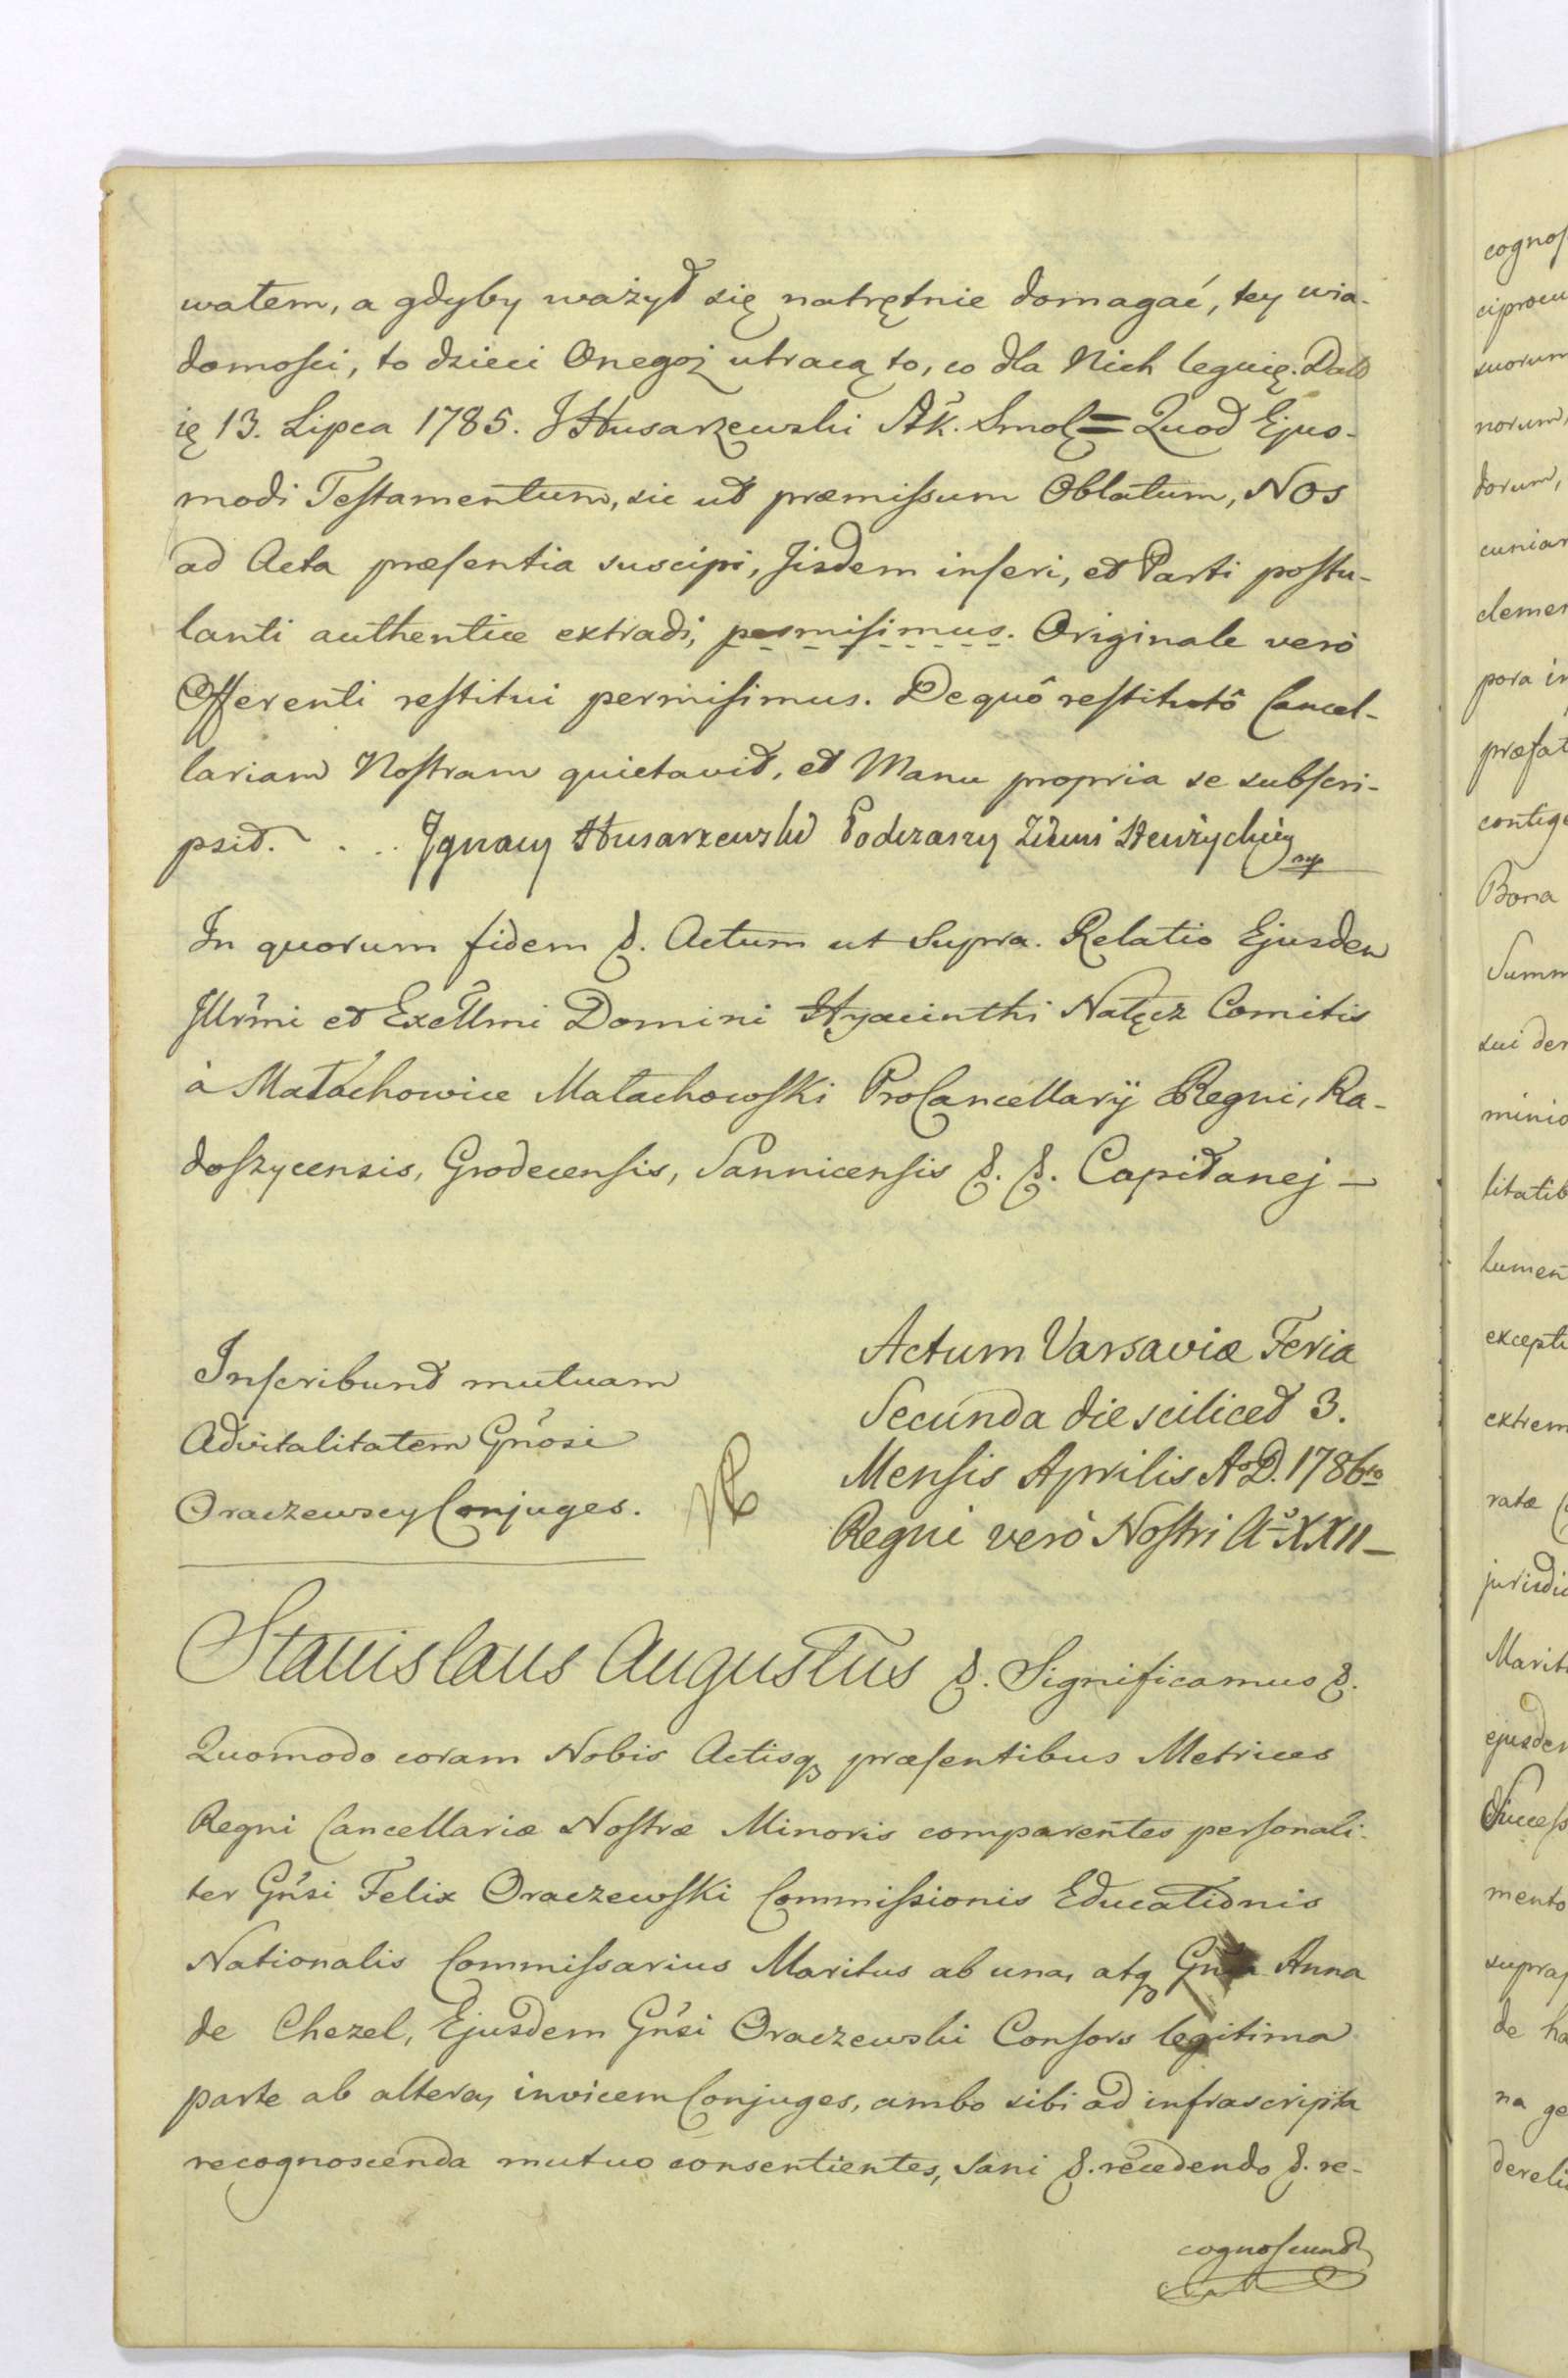 wałem, a gdyby ważył się natrętnie domagać, tey wia-
domosci, to dzieci Onegoż utracą to, co dla Nich leguię. Datt
ię 13. Lipca 1785. JHusarzewski Sk. Smol = Quod Ejus-
modi Testamentum, sic ut præmissum Oblatum, Nos
ad Acta præsentia suscipi, Jisdem inseri, et Parti postu-
lanti authentice extradi, permisimus. Originale verò
Offerenti restitui permisimus. De quô restitutô Cancel-
lariam Nostram quietavit, et Manu propria se subscri-
psit. . . . Jgnacy Husarzewski Podczaszy Ziemi mp
In quorum fidem &. Actum ut Supra. Relatio Ejusdem
Jllrmi et Excllmi Domini Hyacinthi Nałęcz Comitis
à Małachowice Małachowski ProCancellarÿ Regni, Ra-
doszycensis, Grodecensis, Sannicensis &. &. Capitanej —
Inscribunt mutuam
Advitalitatem Gnosi
Oraczewscy Conjuges.
Actum Varsaviæ Feria
Secunda die scilicet 3.
Mensis Aprilis AoD. 1786to
Regni verò Nostri Ao XXII —
Stanislaus Augustus &. Significamus &.
Quomodo coram Nobis Actisq præsentibus Metrices
Regni Cancellariæ Nostræ Minoris comparentes personali-
ter Gnsi Felix Oraczewski Commissionis Educationis
Nationalis Commissarius Maritus ab una, atq Gnsa Anna
de Chezel, Ejusdem Gnsi Oraczewski Consors legitima
parte ab altera, invicem Conjuges, ambo sibi ad infrascripta
recognoscenda mutuo consentientes, sani &. recedendo &. re-
cognoscunt
cognos
ciprocu
suorum
norum,
dorum,
cuniar
clemen
pora in
præfat
contige
Bona
Summ
sui der
minio
litatib
lumen
excepti
extrem
ratæ
jurisdic
Marit
ejusden
Success
mento
supras
de ha
na ge
dereli